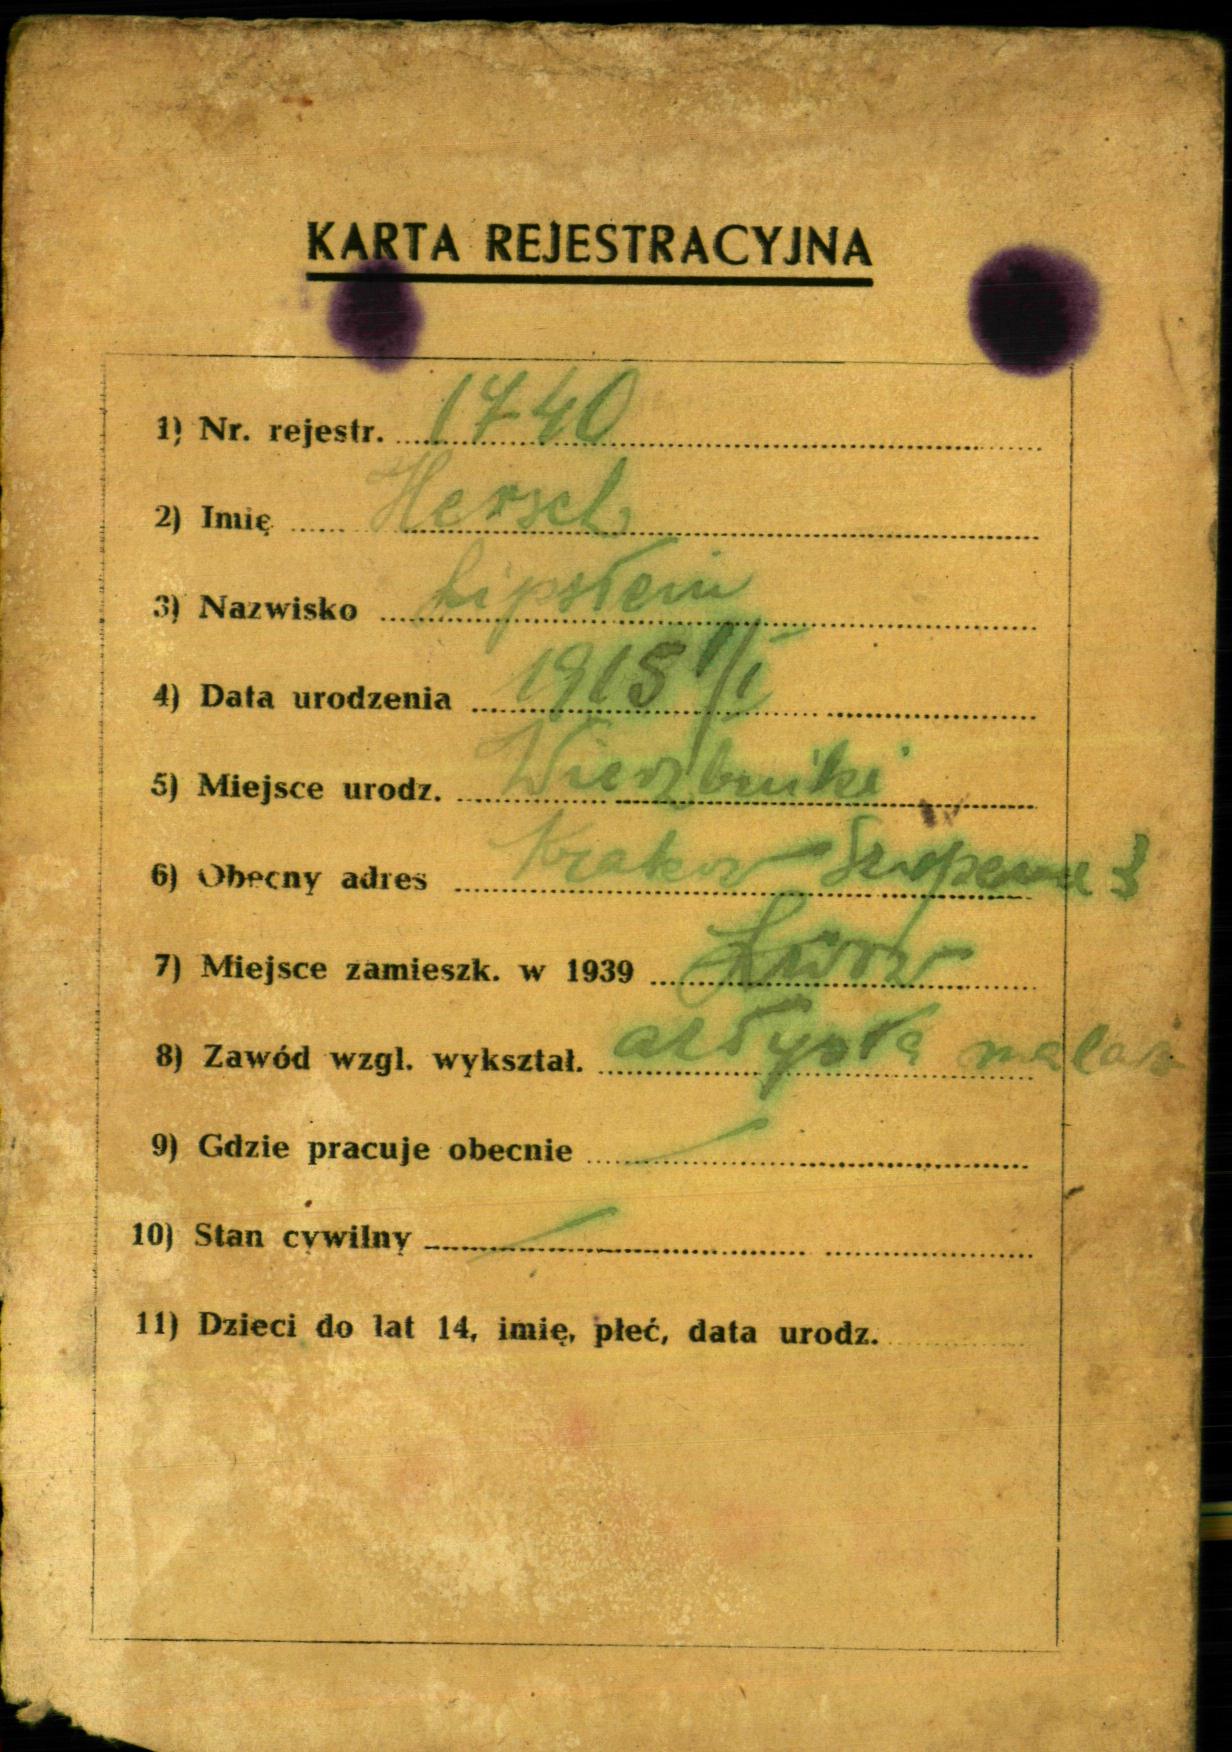 KARTA REJESTRACYJNA
1) Nr. rejestr. 1740
2) Imię Hersch
3) Nazwisko Lipstein
4) Data urodzenia 1915 1/I
5) Miejsce urodz. Wierzbniki
6) Obecny adres Krakow 3
7) Miejsce zamieszk. w 1939 Lwów
8) Zawód wzgl. wykształ. artysta malarz
9) Gdzie pracuje obecnie —
10) Stan cywilny —
11) Dzieci do lat 14, imię, płeć, data urodz.